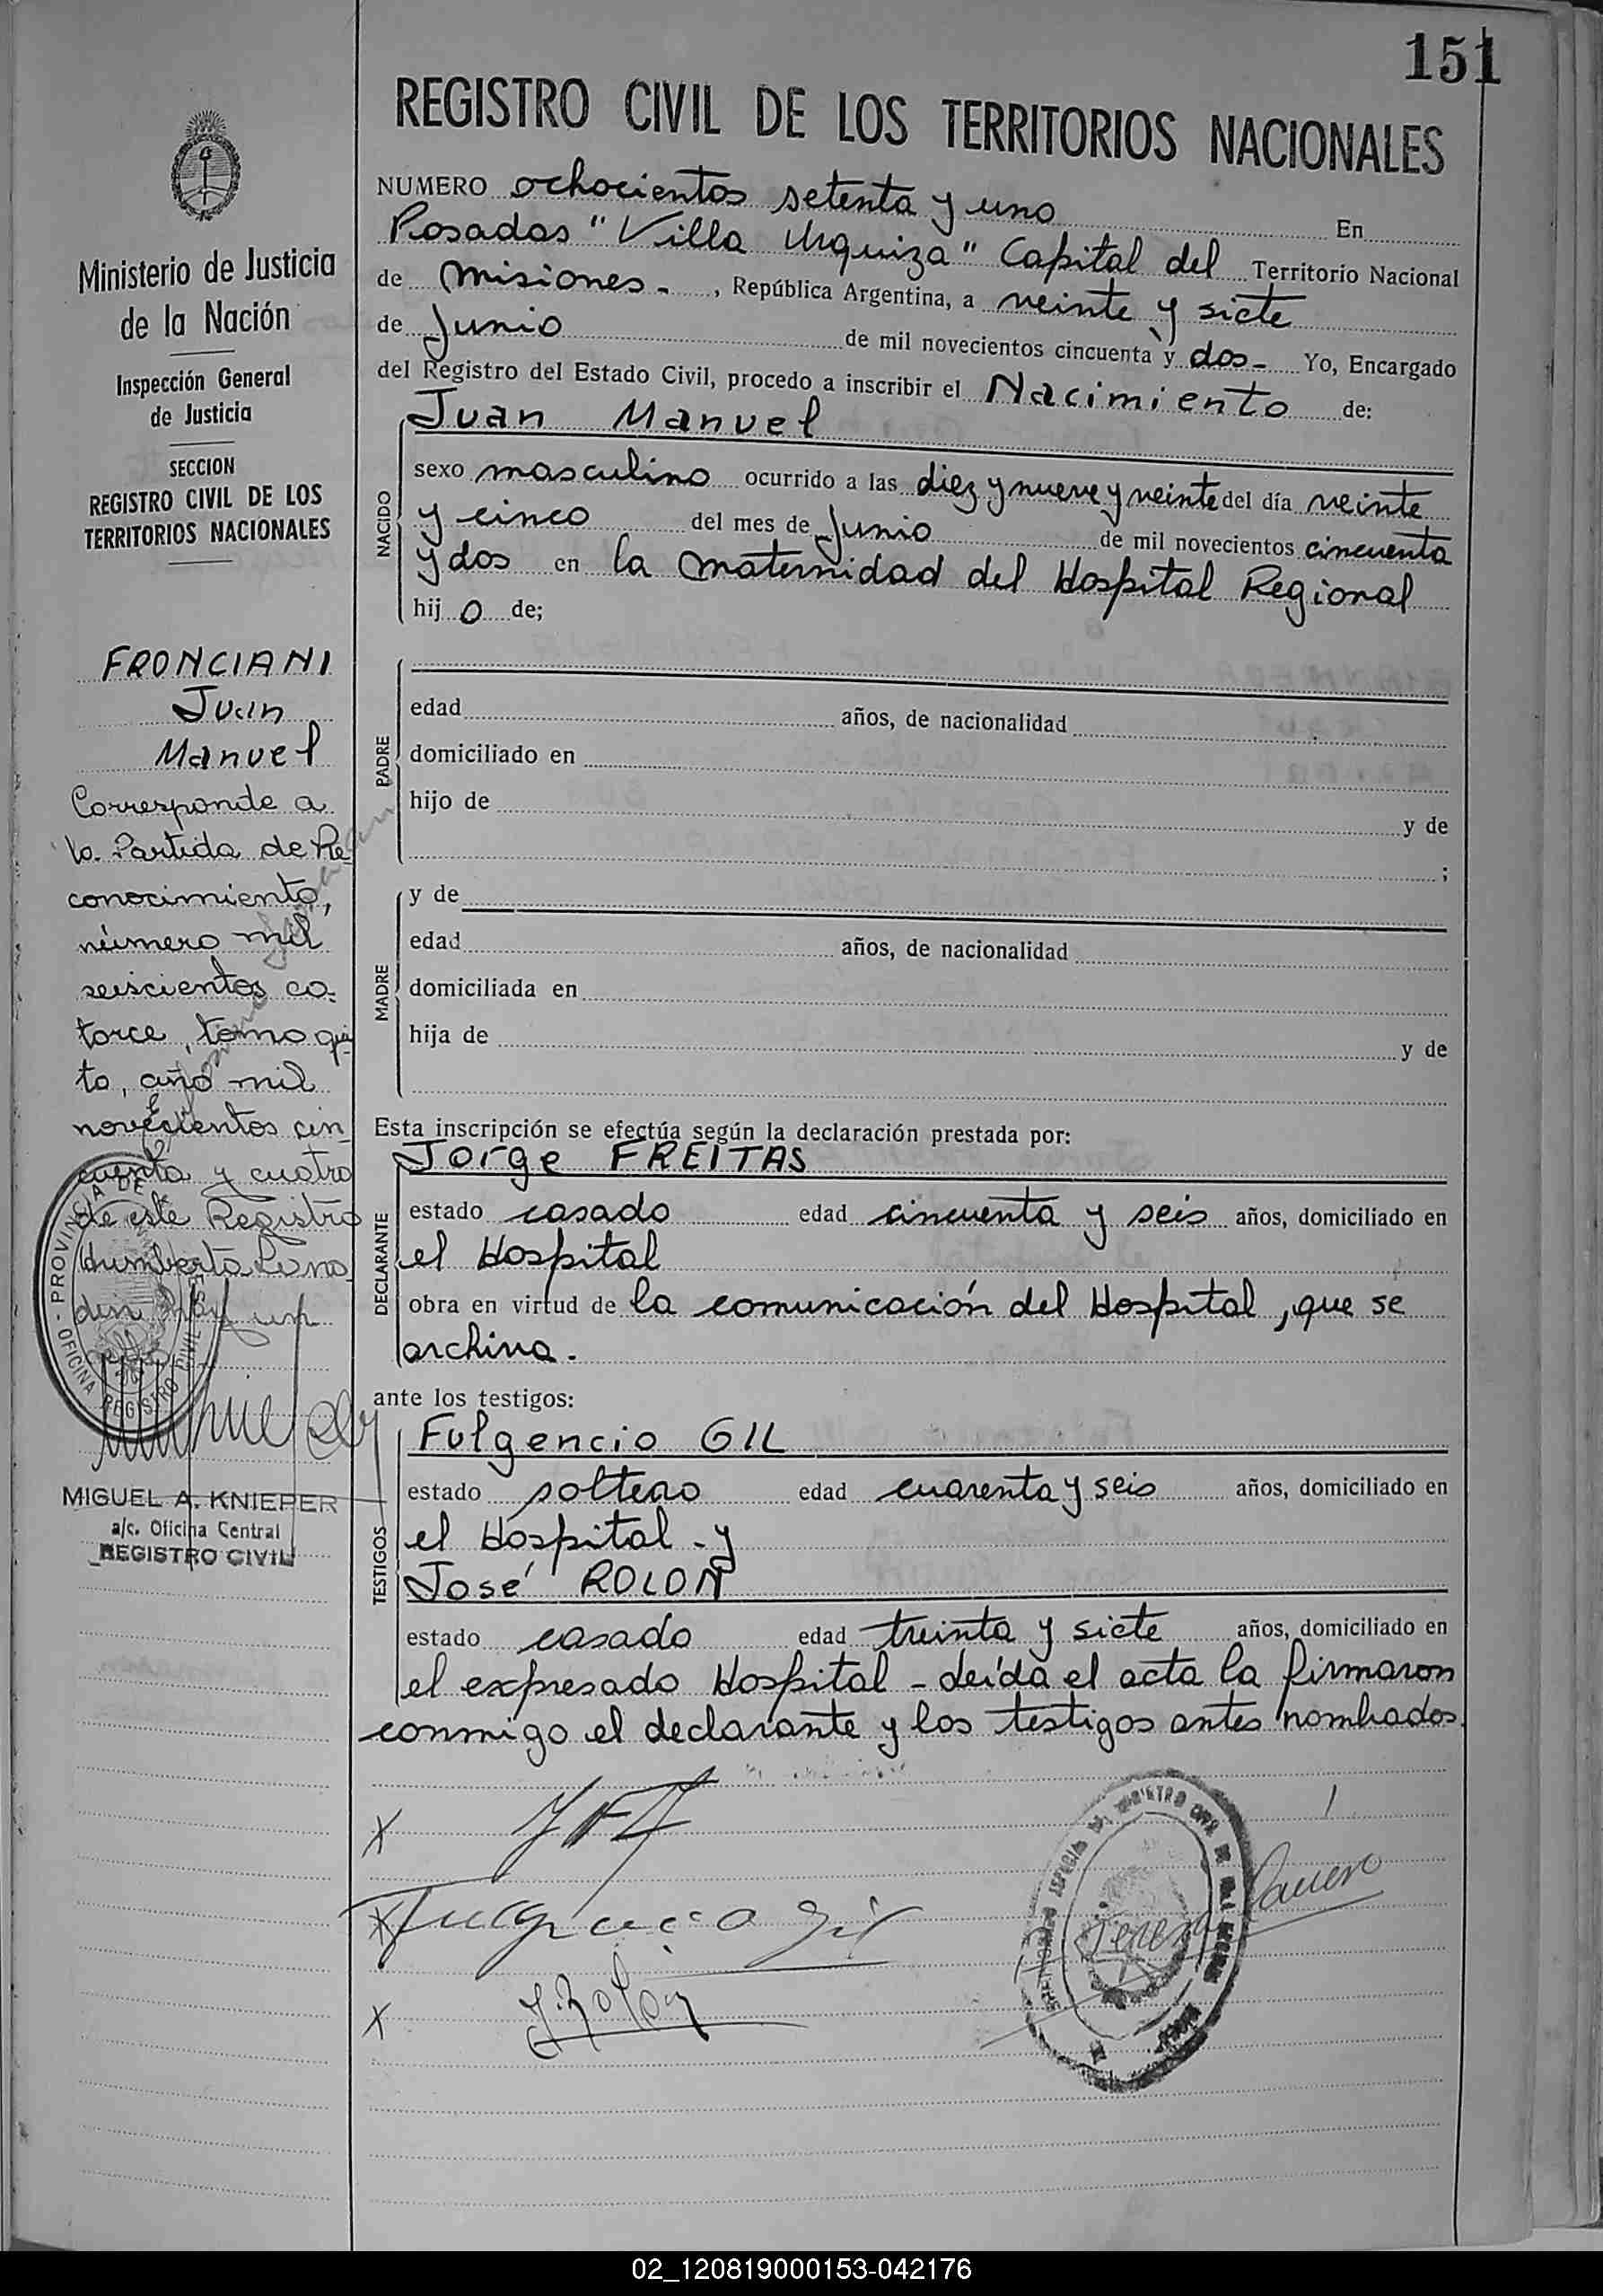 151
REGISTRO CIVIL DE LOS TERRITORIOS NACIONALES
Ministerio de Justicia
de la Nación
Inspección General
de Justicia
SECCION
REGISTRO CIVIL DE LOS
TERRITORIOS NACIONALES
FRONCIANI
Juan
Manuel
Corresponde a
la Partida de Re
conocimiento,
número mil
seiscientos ca-
torce, tomo
to, año mil
novecientos cin
cuenta y cuatro
de este Registro
Humberto
PROVINCIA DE
OFICINA REGISTRO CIVIL
MIGUEL A. KNIEPER
a/c. Oficina Central
REGISTRO CIVIL
NUMERO ochocientos setenta y uno En
Posadas "Villa Urquiza" Capital del Territorio Nacional
de Misiones-, República Argentina, a veinte y siete
de Junio de mil novecientos cincuenta y dos- Yo, Encargado
del Registro del Estado Civil, procedo a inscribir el Nacimiento de:
Juan Manuel
NACIDO
sexo masculino ocurrido a las diez y nueve y veinte del día veinte
y cinco del mes de Junio de mil novecientos cincuenta
y dos en la maternidad del Hospital Regional
hijo de;
PADRE
edad años, de nacionalidad
domiciliado en
hijo de y de
;
MADRE
y de
edad años, de nacionalidad
domiciliada en
hija de y de
Esta inscripción se efectúa según la declaración prestada por:
Jorge FREITAS
DECLARANTE
estado casado edad cincuenta y seis años, domiciliado en
el Hospital
obra en virtud de la comunicación del Hospital, que se
archiva.
ante los testigos:
TESTIGOS
Fulgencio GIL
estado soltero edad cuarenta y seis años, domiciliado en
el Hospital - y
José ROLON
estado casado edad treinta y siete años, domiciliado en
el expresado Hospital - Leída el acta la firmaron
conmigo el declarante y los testigos antes nombrados.
x
x Fulgencio Gil
x J. Rolon
02_120819000153-042176